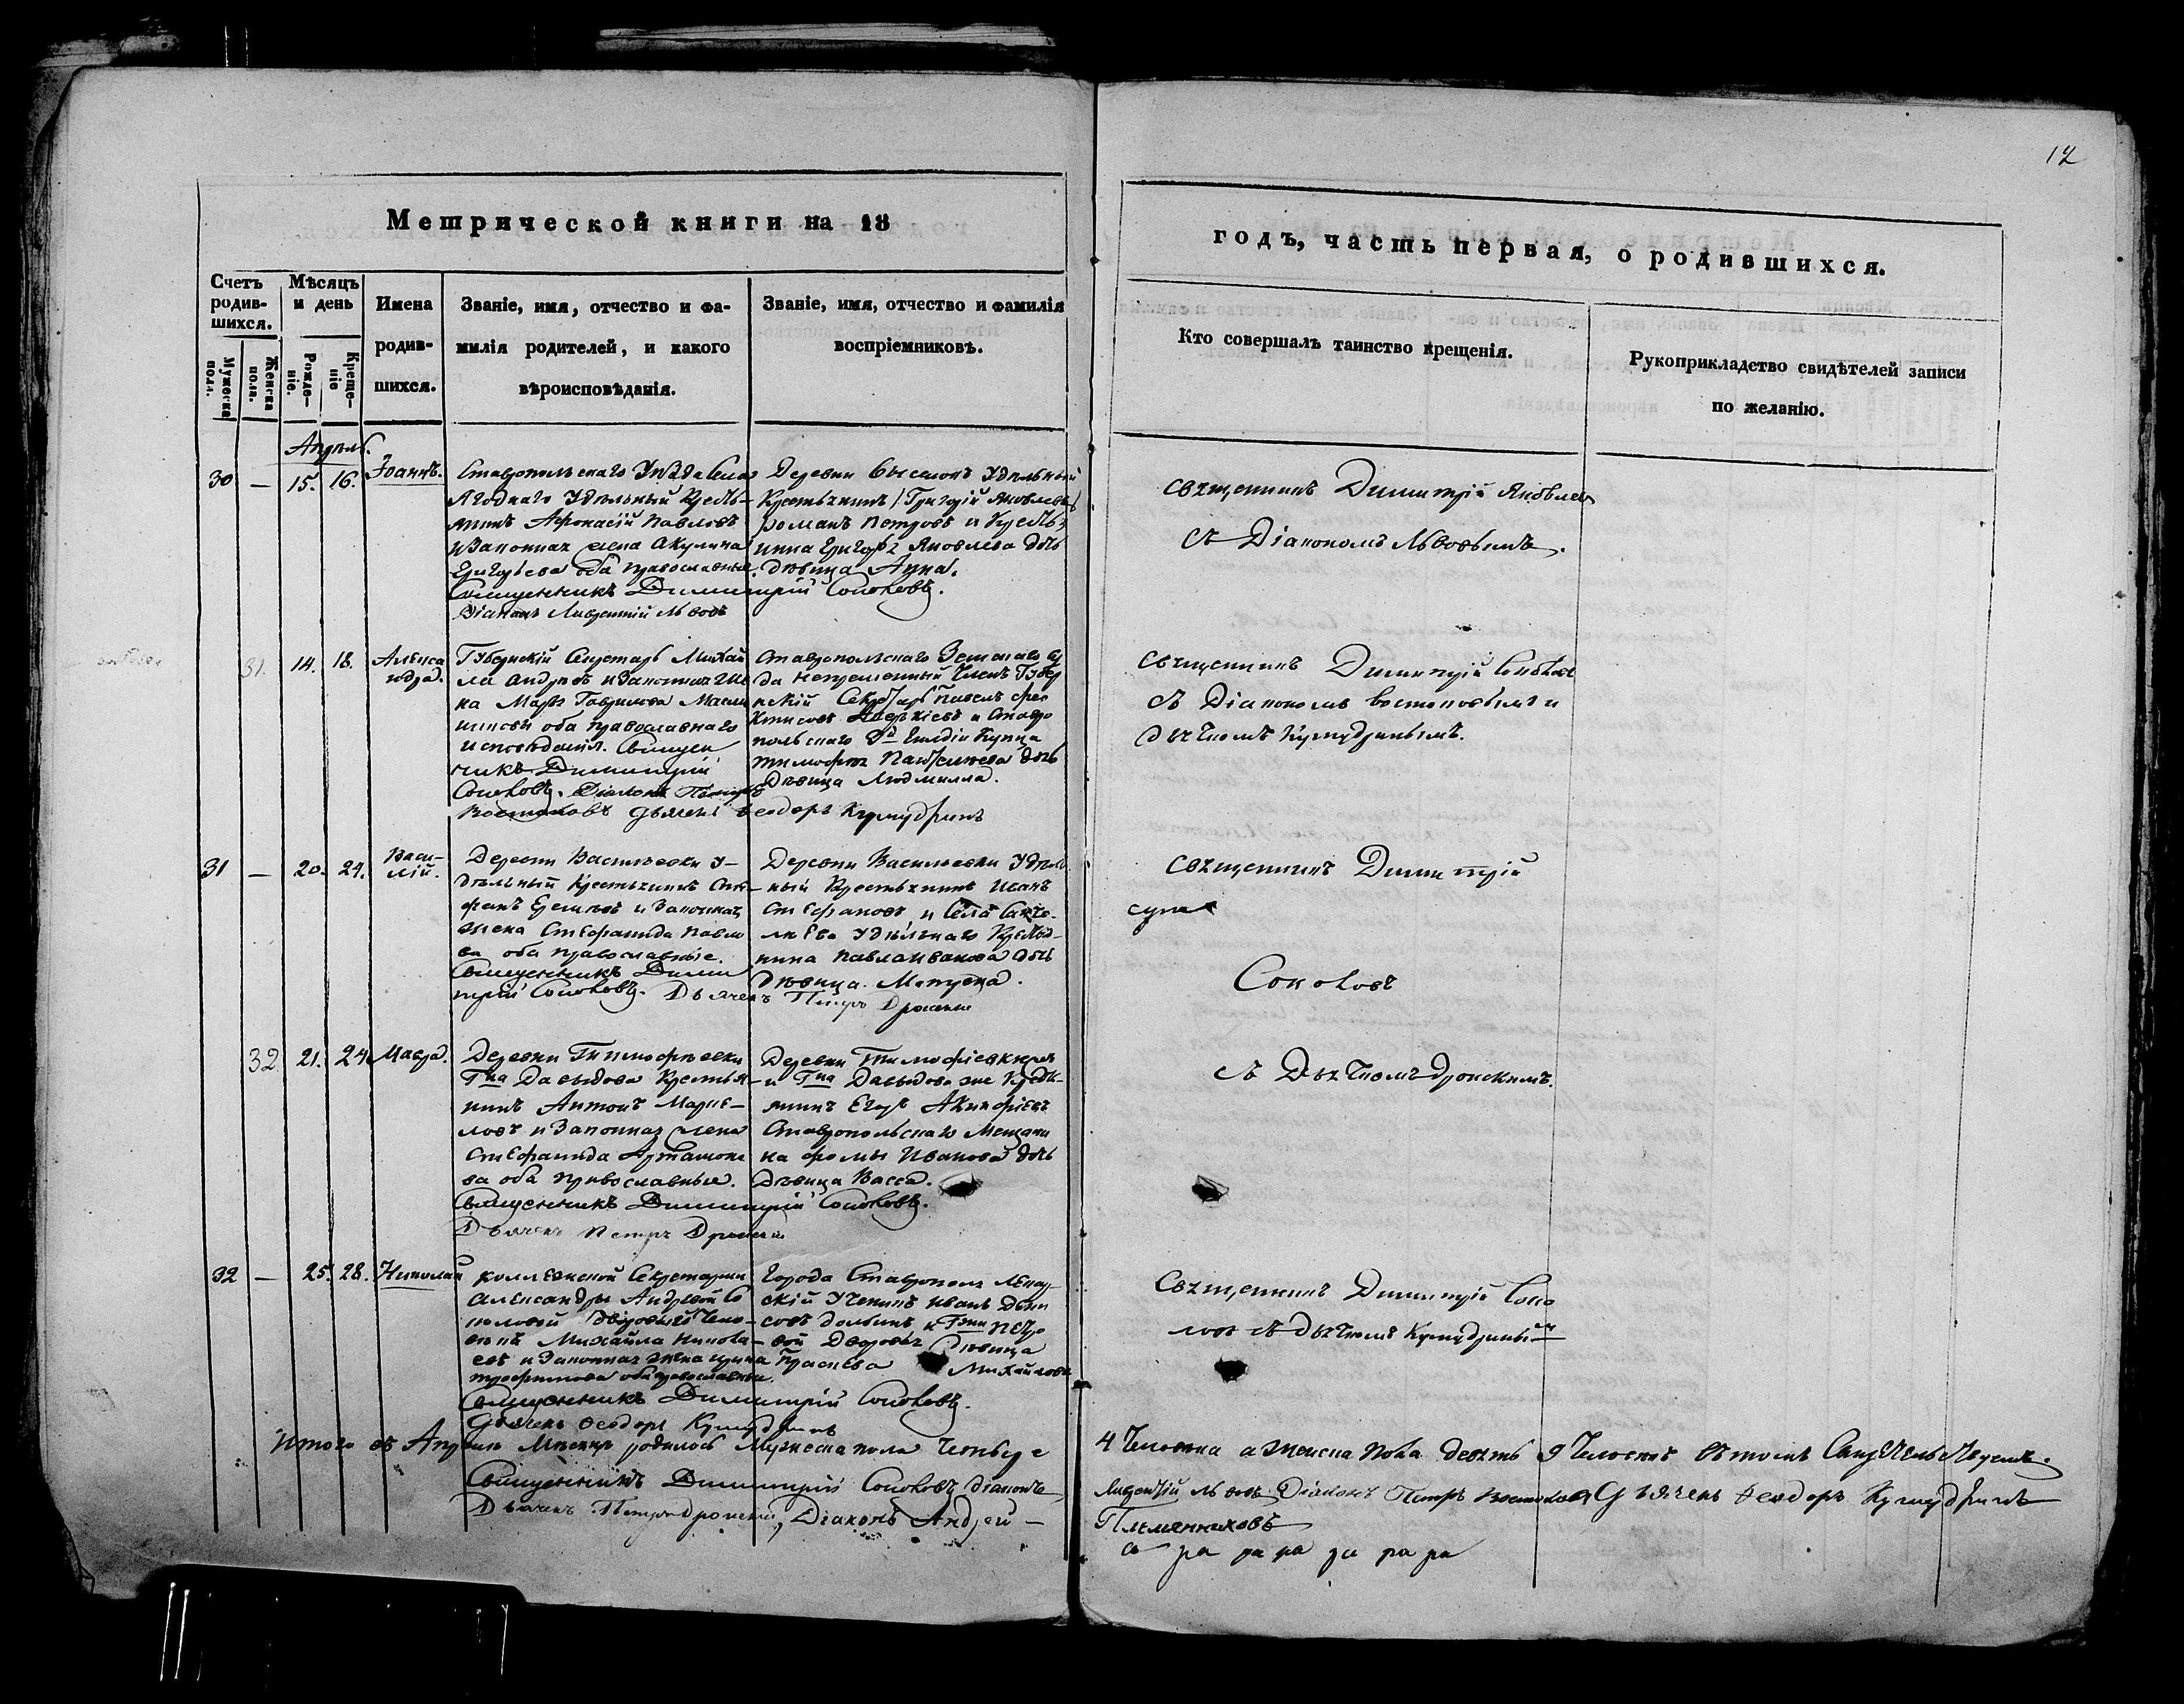 12
Метрической книги на 18
годъ, часть первая, о родившихся.
Счетъ родив-шихся.
Мужеска пола.
Женска пола.
Мѣсяцъ и день
Рожде-ніе.
Креще-ніе
Имена родив-шихся.
Званіе, имя, отчество и фа-
милія родителей, и какого
вѣроисповѣданія.
Званіе, имя, отчество и фамилія
воспріемниковъ.
Кто совершалъ таинство крещенія.
Рукоприкладство свидѣтелей записи
по желанію.
Апрѣль.
30 — 15. 16. Іоаннъ.
Ставропольскаго Уѣзда Села
Ягоднаго Удѣльный Кресть-
янинъ Афонасій Павловъ
и Законная жена Акулина
Григорьева оба православные.
Священникъ Димитрій Соколовъ.
Діаконъ Лаврентій Львовъ
Деревни Выселокъ Удѣльный
Крестьянинъ Григорій Яковлевъ
романъ Петровъ и Кресть
нина Григорья Яковлева дочь
дѣвица Анна.
священникъ Димитрій Яковлев
съ Діакономъ Львовымъ.
31. 14. 18. Алекса
ндра.
Губернскій Секретарь Михай
ла Андреевъ и Законная же
на Марья Гаврилова
оба православнаго
исповѣданія. Священ
никъ Димитрій
Соколовъ. Діаконъ Петръ
Востоковъ Дьячекъ Ѳеодоръ Кумудринъ
Ставропольскаго Земскаго Су
да Непременный Членъ Губер
нскій Секретарь Павелъ
и Ставро
польскаго Гильдіи Купца
тимофея дочь
Дѣвица Людмилла.
священникъ Димитрій Соколов
съ Діакономъ Востоковымъ и
дьячкомъ Кумудринымъ.
31 — 20. 24. Васи-
лій.
Деревни Васильевки У-
дѣльный Крестьянинъ Сте-
фанъ и Законная
жена Стефанида Павло
ва оба православные.
Священникъ Дими
трій Соколовъ. Дьячекъ Петръ Дронскій
Деревни Васильевки Удѣль
ный Крестьянинъ Иванъ
Стефановъ и Села
Удѣльнаго Крестья-
нина Павла Иванова дочь
Дѣвица Матрена.
священникъ Димитрій
Соколовъ
съ Дьячкомъ Дронскимъ.
32. 21. 24 Мавра.
Деревни Тимофѣевки
Гна Давыдова Крестья-
нинъ Антонъ
ловъ и Законная жена
Стефанида Артамоно
ва оба православные.
Священникъ Димитрій Соколовъ.
Дьячекъ Петръ Дронскій
Деревни Тимофѣевки
и Гна Давыдова же Кресть-
янинъ Егоръ Акинфіевъ
Ставропольскаго Мещани
на Фомы Иванова дочь
Дѣвица Васса.
32 — 25. 28. Николай
Коллежской Секретарши
Александры Андреевой Со
коловой дворовый Чело-
вѣкъ Михайла Никола-
евъ и Законная жена ирина
трофимова оба православные.
Священникъ Димитрій Соколовъ.
Дьячекъ Ѳеодоръ Кумудринъ
Города Ставрополя Лекар-
скій Ученикъ Иванъ Дени
совъ и Гжи Петро
вой Дворовая Дѣвица
Михайлова
Священникъ Димитрій Соко
ловъ съ дьячкомъ Кумудринымъ
Итого въ Апрѣлѣ Мѣсяцѣ родилось Мужеска пола Четыре 4 Человека а женска пола девять 9 Человекъ въ томъ
Священникъ Димитрій Соколовъ діаконъ Лаврентій Львовъ Діаконъ Петръ Востоковъ Дьячекъ Ѳеодоръ Кумудринъ
Дьячекъ Петръ Дронскій, Діаконъ Андрей — Племянниковъ